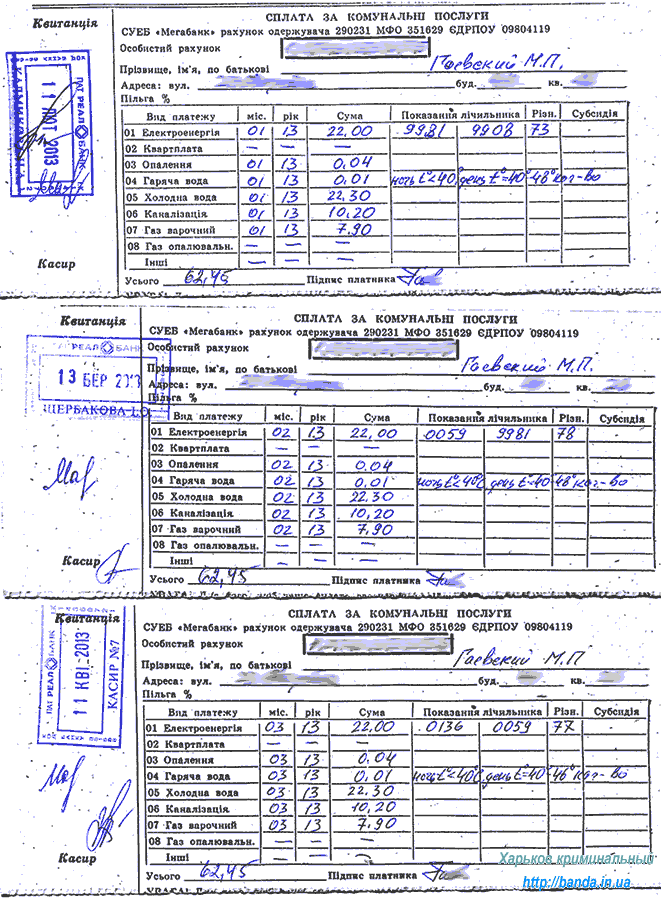 Квитанція
СПЛАТА ЗА КОМУНАЛЬНІ ПОСЛУГИ
СУЕБ «Мегабанк» рахунок одержувача 290231 МФО 351629 ЄДРПОУ 09804119
Особистий рахунок
Прізвище, ім'я, по батькові Гаевский М.П.
Адреса: вул. буд. кв.
Пільга %
ПАТ РЕАЛ БАНК
11 ЛЮТ 2013
Вид платежу міс. рік Сума Показання лічильника Різн. Субсидія
01 Електроенергія 01 13 22,00 9981 9908 73
02 Квартплата — — —
03 Опалення 01 13 0,04
04 Гаряча вода 01 13 0,01 ночь t°<40°, день t°=40°-48° кол-во
05 Холодна вода 01 13 22,30
06 Каналізація 01 13 10,20
07 Газ варочний 01 13 7,90
08 Газ опалювальн. — — —
Інші — — —
Касир
Усього 62,45 Підпис платника
Квитанція
СПЛАТА ЗА КОМУНАЛЬНІ ПОСЛУГИ
СУЕБ «Мегабанк» рахунок одержувача 290231 МФО 351629 ЄДРПОУ 09804119
Особистий рахунок
РЕАЛ БАНК
13 БЕР 2013
ЩЕРБАКОВА І.О.
Прізвище, ім'я, по батькові Гаевский М.П.
Адреса: вул. буд. кв.
Пільга %
Вид платежу міс. рік Сума Показання лічильника Різн. Субсидія
01 Електроенергія 02 13 22,00 0059 9981 78
02 Квартплата — — —
03 Опалення 02 13 0,04
04 Гаряча вода 02 13 0,01 ночь t°<40°, день t°=40°-48° кол-во
05 Холодна вода 02 13 22,30
06 Каналізація 02 13 10,20
07 Газ варочний 02 13 7,90
08 Газ опалювальн. — — —
Інші — — —
Касир
Усього 62,45 Підпис платника
Квитанція
СПЛАТА ЗА КОМУНАЛЬНІ ПОСЛУГИ
СУЕБ «Мегабанк» рахунок одержувача 290231 МФО 351629 ЄДРПОУ 09804119
Особистий рахунок
ПАТ РЕАЛ БАНК
11 КВІ 2013
КАСИР №7
Прізвище, ім'я, по батькові Гаевский М.П
Адреса: вул. буд. кв.
Пільга %
Вид платежу міс. рік Сума Показання лічильника Різн. Субсидія
01 Електроенергія 03 13 22,00 0136 0059 77
02 Квартплата — — —
03 Опалення 03 13 0,04
04 Гаряча вода 03 13 0,01 ночь t°<40°, день t°=40°-48° кол-во
05 Холодна вода 03 13 22,30
06 Каналізація 03 13 10,20
07 Газ варочний 03 13 7,90
08 Газ опалювальн. — — —
Інші — — —
Касир
Усього 62,45 Підпис платника
Харьков криминальный
http://banda.in.ua